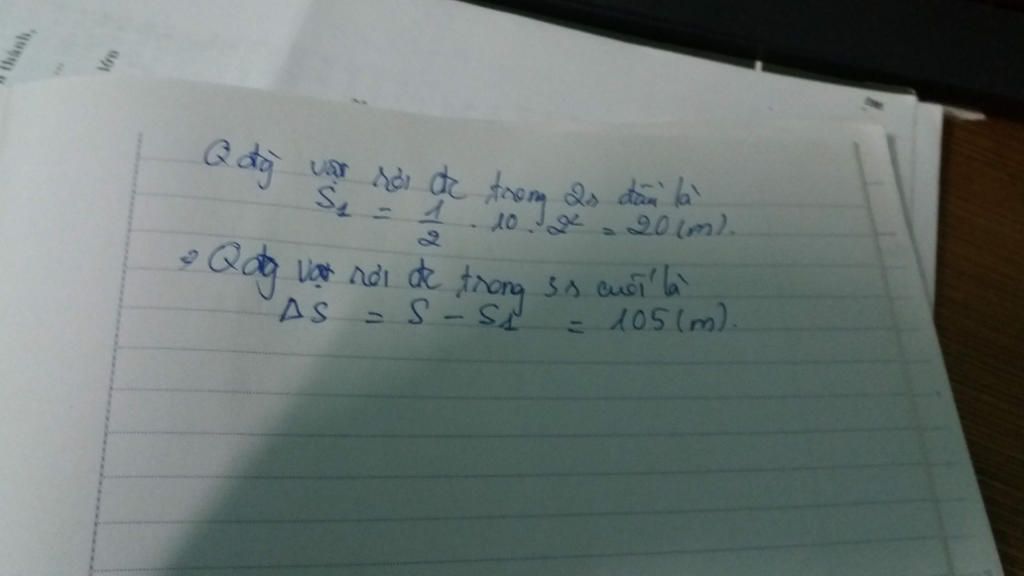 thành,
lớn
Qđg vật rơi đc trong 2s đầu là
S1 = 1/2 . 10 . 2² = 20 (m).
=> Qđg vật rơi đc trong 3s cuối là
ΔS = S - S1 = 105 (m).